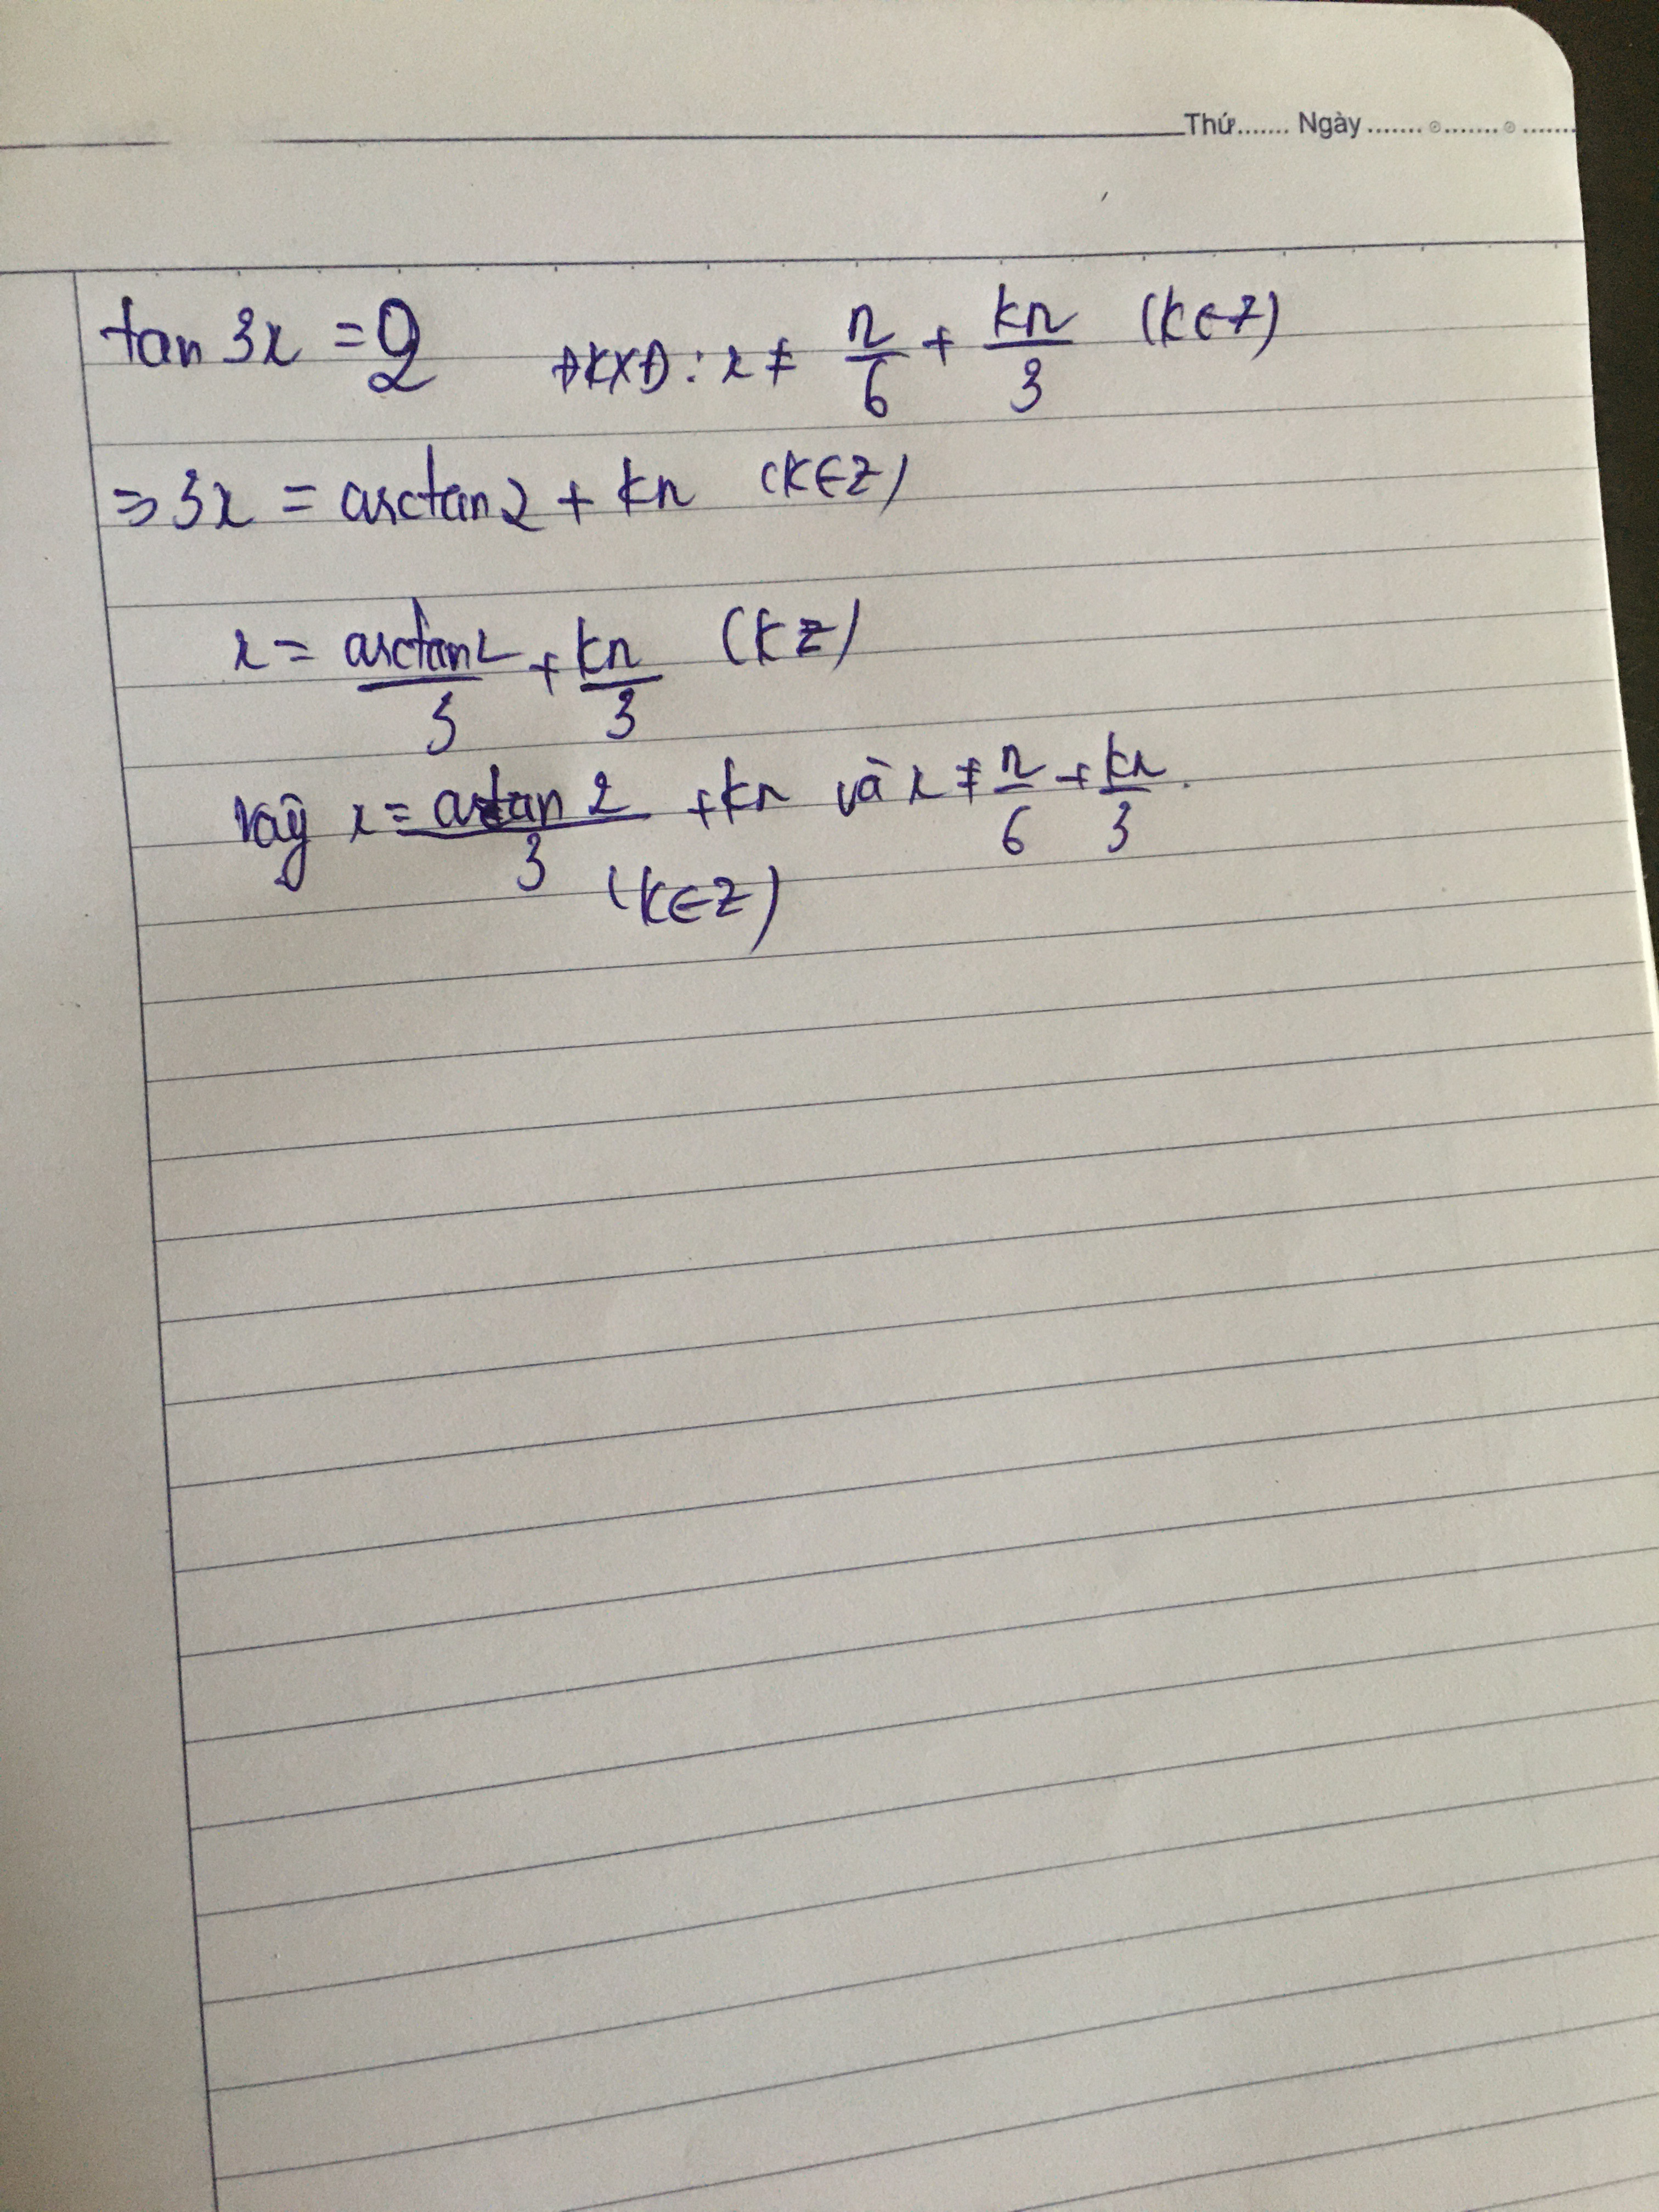 Thứ....... Ngày...............
tan 3x = 2 ĐKXĐ: x ≠ π/6 + kπ/3 (k∈Z)
=> 3x = arctan2 + kπ (k∈Z)
x = arctan2/3 + kπ/3 (k Z)
Vậy x = arctan 2/3 + kπ và x ≠ π/6 + kπ/3.
(k∈Z)